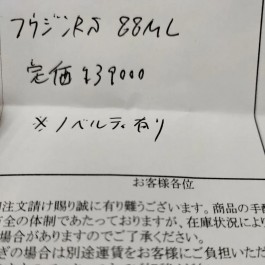 フウジンRS 88ML
定価 ¥39000
※ノベルティ有り
お客様各位
注文請け賜り誠に有り難うございます。商品の手配
全の体制であたっておりますが、在庫状況により
場合がありますのでご了承ください。
ぎの場合は別途運賃をお客様にご負担いただ